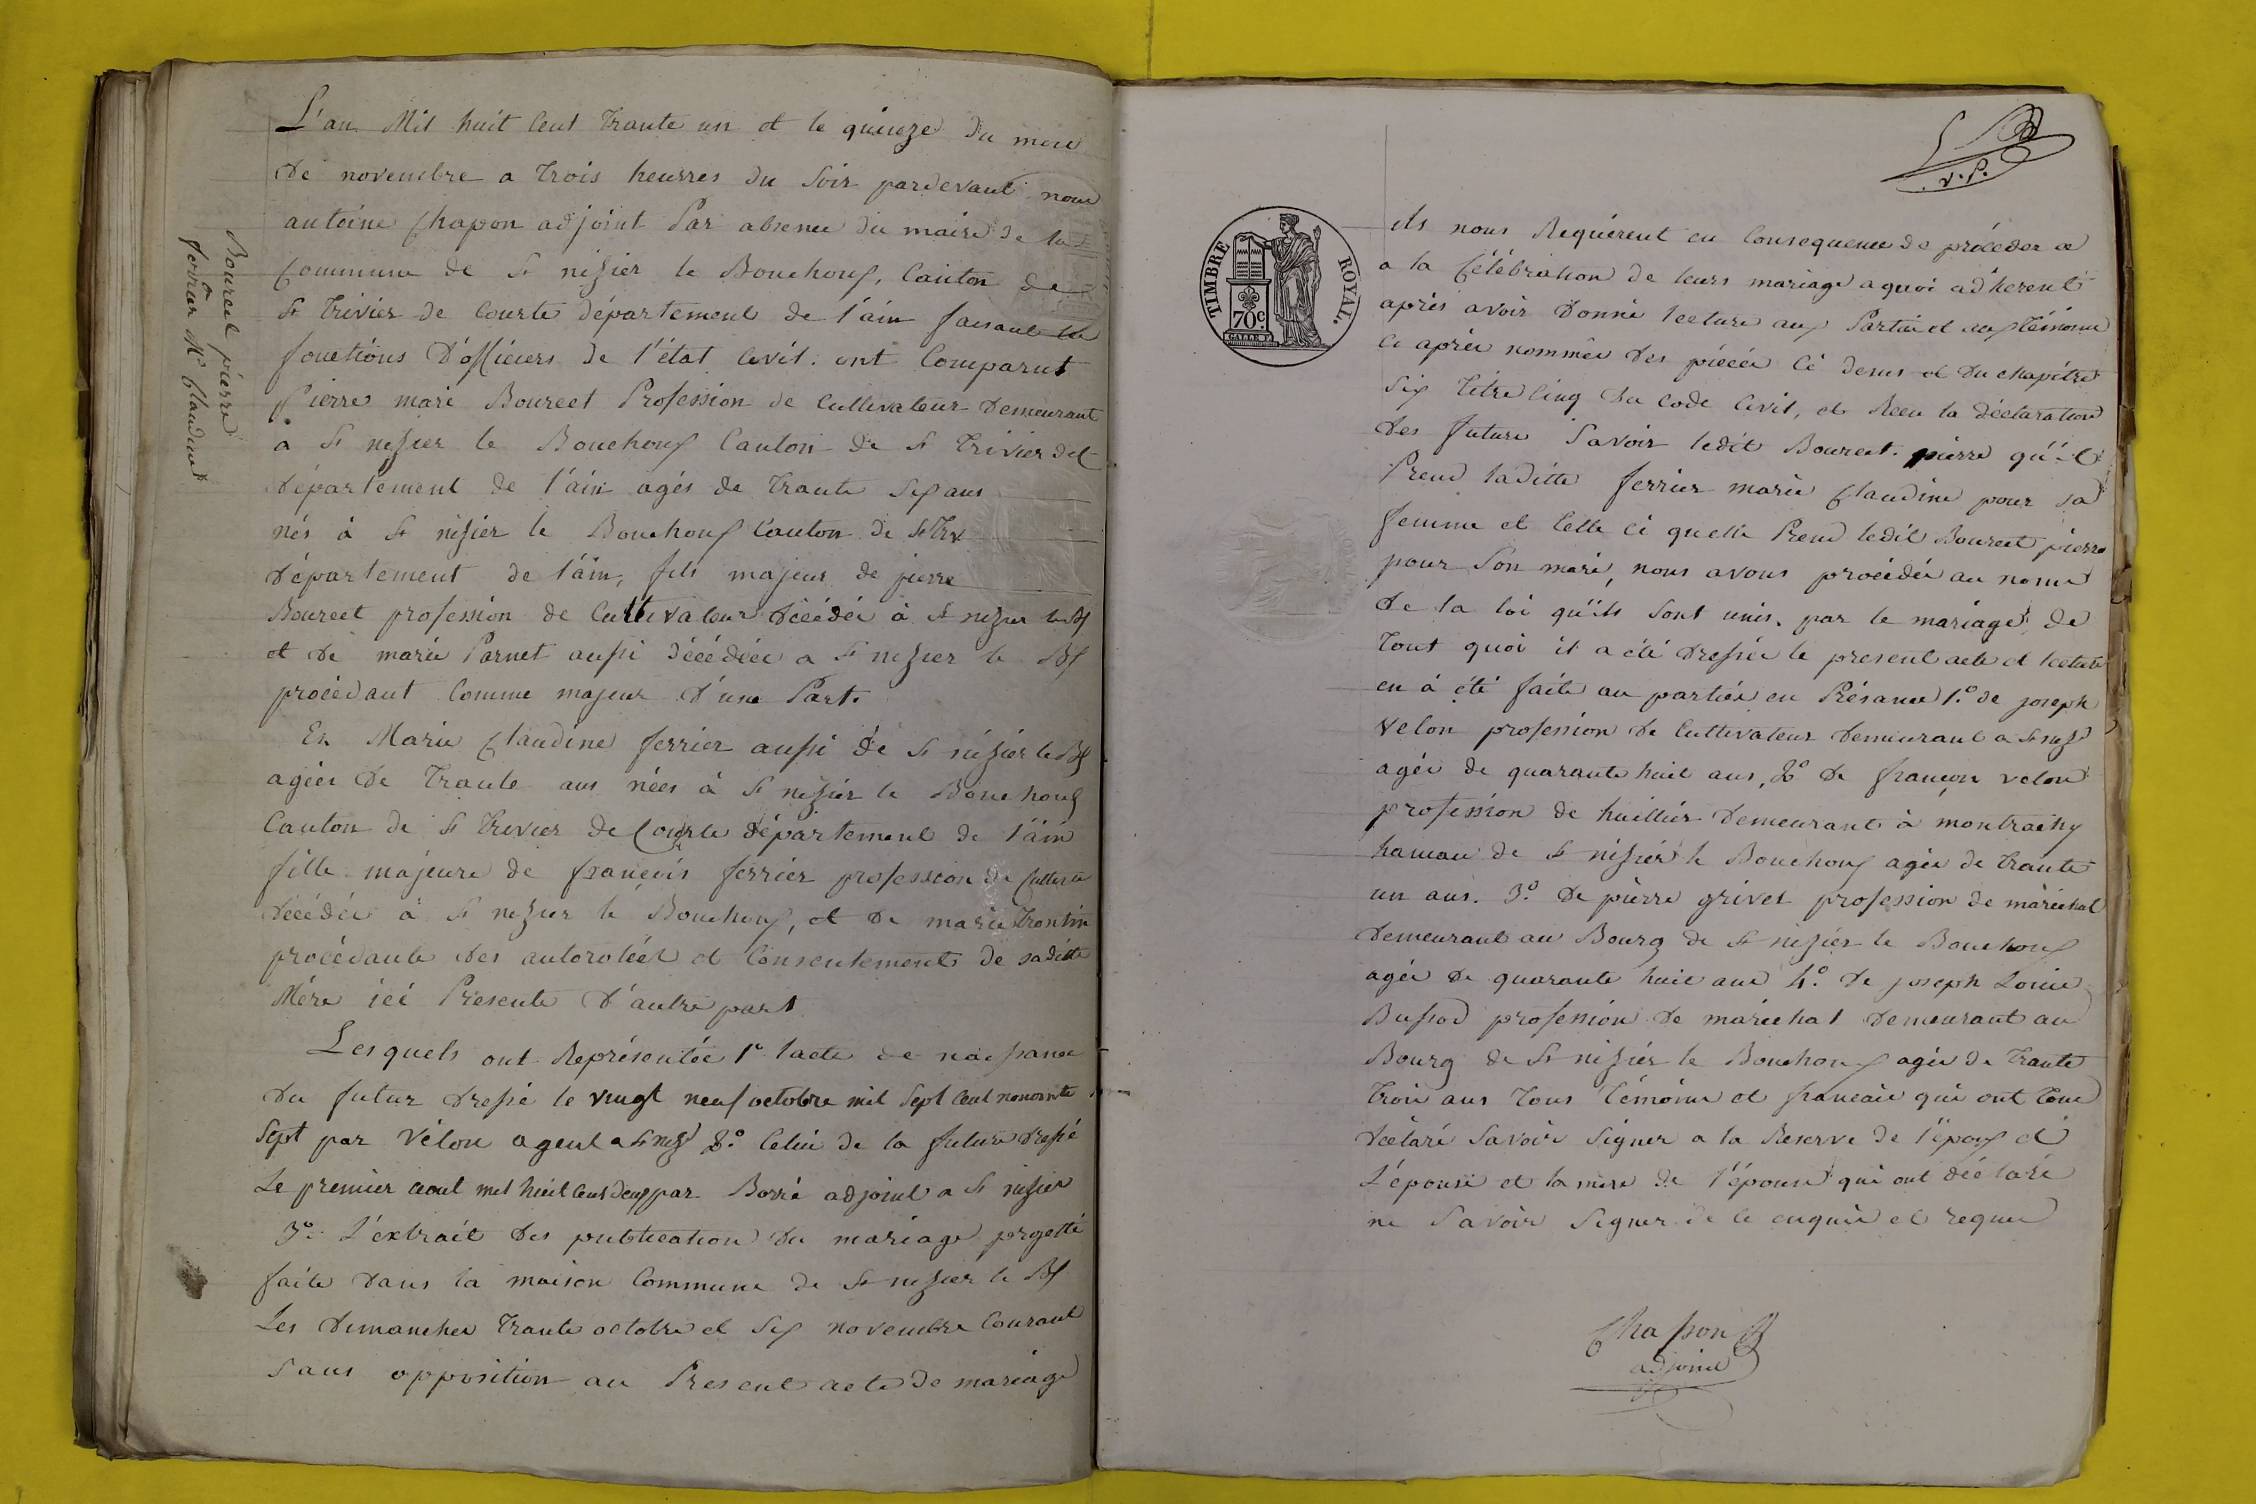 Bourcet pierre
ferrier Mie Claudine
L'an Mil huit Cent Trante un et le quinze du mois
de novembre a Trois heurres du Soir pardevant nous
antoine Chapon adjoint Par absence du maire de la
Commune de St nisier le Bouchoux, Canton de
St Trivier de Courte département de l'ain faisant les
fonctions d'officiers de l'état Civil. ont Comparut
Pierre mari Bourcet Profession de Cultivateur demeurant
a St nisier le Bouchoux Canton de St Trivier dct
département de l'ain agés de Trante Sept ans
nés à St nisier le Bouchoux Canton de St Trv
département de l'ain, fils majeur de pierre
Bourcet profession de Cultivateur décédé à St nizier le Bx
et de marie Parnet aussi décédée a St nizier le Bx
procédant Comme majeur d'une Part.
Et Marie Claudine ferrier aussi de St nizier le Bx
agée de Trante ans nées à St nisier le Bouchoux
Canton de St Trivier de Courte département de l'ain
fille majeure de françois ferrier profession de Cultivtr
décédé à St nizier le Bouchoux, et de marie Trontin
procédante des autorotéés et Consentements de sa ditte
Mére ici Presente d'autre part
Les quels ont Représentée 1° l'acte de naissance
du futur dressé le vingt neuf octobre mil Sept Cent nonornte
Sept par Vélon agent a St nizr 2.° Celui de la future dressé
Le premier aout mil huit Cent deux par Borré adjoint a St nisier
3° L'extrait des publication du mariage projetté
faite dans la maison Commune de St nizier le Bx
Les dimanches Trante octobre et Six novembre Courant
Sans opposition au Present acte de mariage
V. P.
TIMBRE ROYAL.
70c.
ils nous Requérent en Consequence de procéder a
a la Célébration de leurs mariage a quoi adherent
après avoir donné lecture aux Parties et aux Témoins
Ci après nommés des pièces Ci desus et du chapitre
Six Titre Cinq du Code Civil, et Recu la déclaration
des futurs Savoir ledit Bourcet pierre qu'il
Prend laditte ferrier marie Claudine pour sa
femme et Celle Ci quelle Prend ledit Bourcet pierre
pour Son mari, nous avons procédé au nom
de la loi qu'ils sont unis par le mariage de
Tout quoi il a été dressée le present acte et lecture
en à été faite au parties en Présance 1.° de joseph
Velon profession de Cultivateur demeurant a St nizr
agée de quarante huit ans, 2° de françois velon
profession de huillier demeurant à montrachy
hameau de St nisier le Bouchoux agée de Trante
un ans. 3° De pierre grivet profession de maréchal
demeurant au Bourg de St nizier le Bouchoux
agée de quarante huit ans 4.° de joseph Louis
Bussod profession de maréchal demeurant au
Bourg de St nisier le Bouchoux agée de Trante
Trois ans Tous Témoins et francais qui ont Tous
déclaré Savoir Signer a la Reserve de l'époux et
L'épouse et la mere de l'épouse qui ont déclaré
ne Savoir Signer de ce enquis et requis
Chapon
adjoint